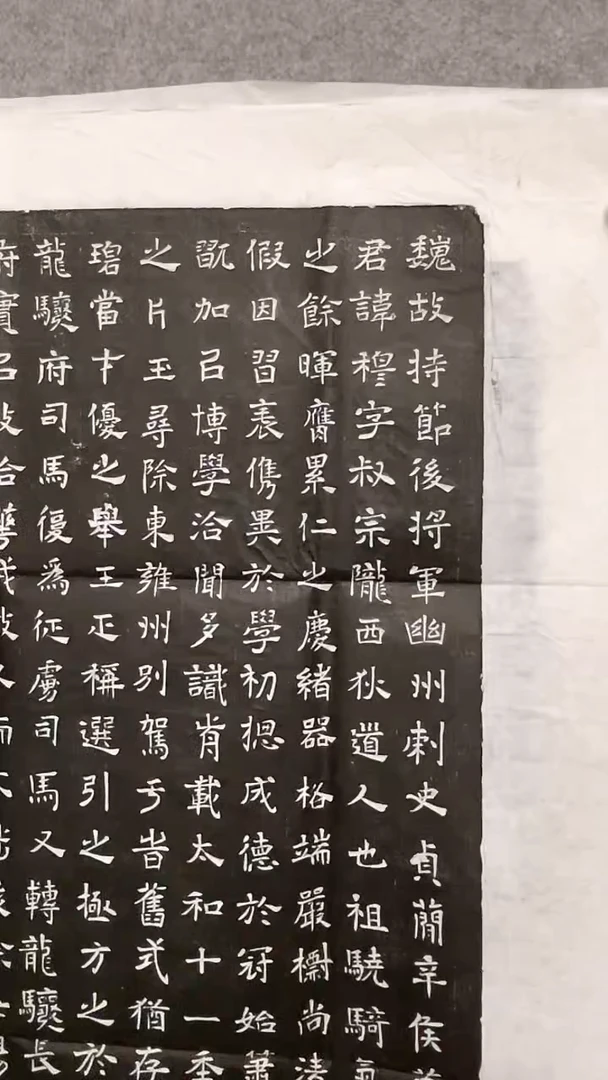 魏故持節後将軍豳州刺史貞蕑辛侯
君諱穆字叔宗隴西狄道人也祖驍騎
之餘暉膺累仁之慶緒器格端嚴尚
假因習袠儁異於學初揔成德於冠始簫
翫加㠯博學洽聞多識肯載太和十一秊
之片玉尋除東雍州別駕于旹舊式猶存
碧當才優之舉王正稱選引之極方之於
龍驤府司馬復爲征虜司馬又轉龍驤長
府實㠯